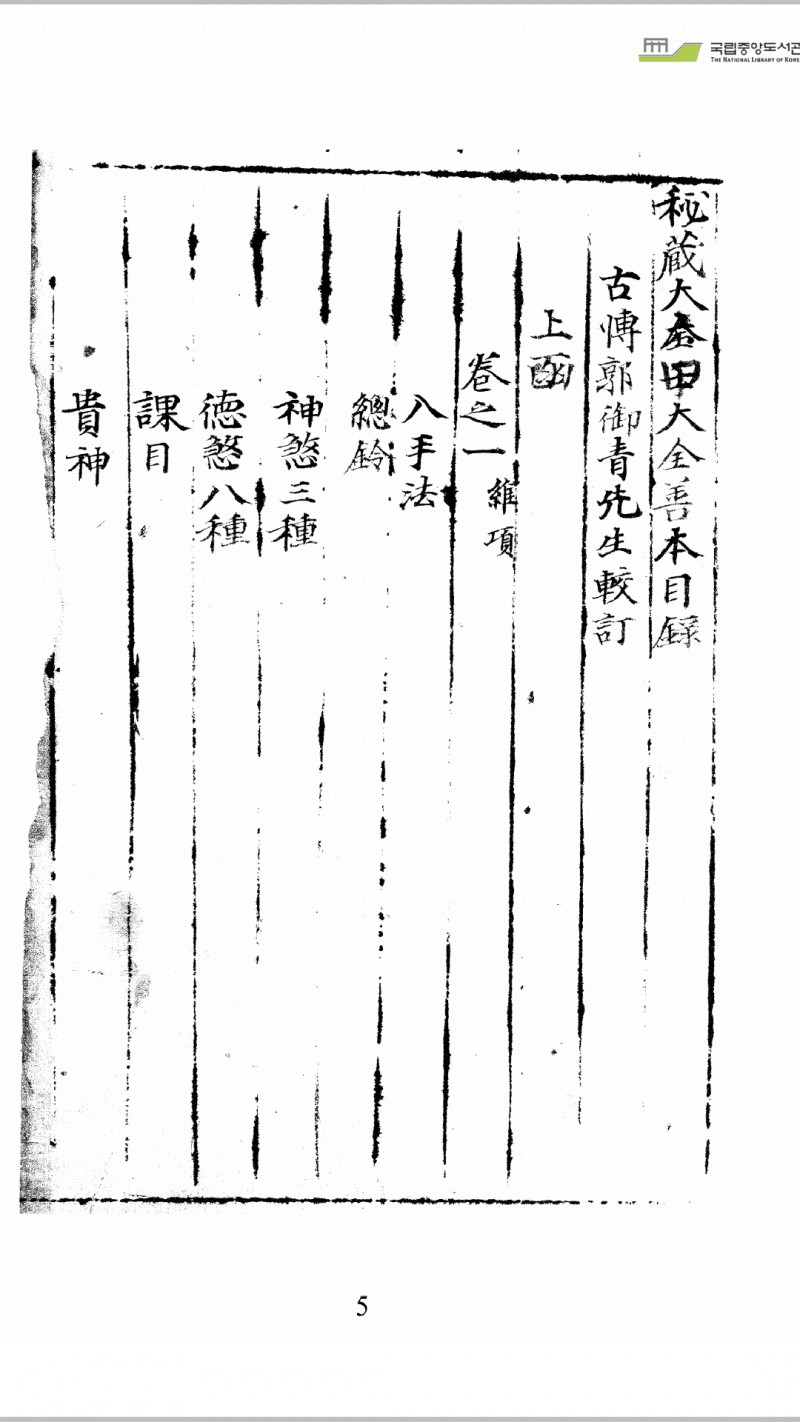 국립중앙도서관
THE NATIONAL LIBRARY OF KORE
秘蔵大六壬大全善本目録
古愽郭御青先生較訂
上函
卷之一
雑項
八手法
總鈐
神煞三種
德煞八種
課目
貴神
5